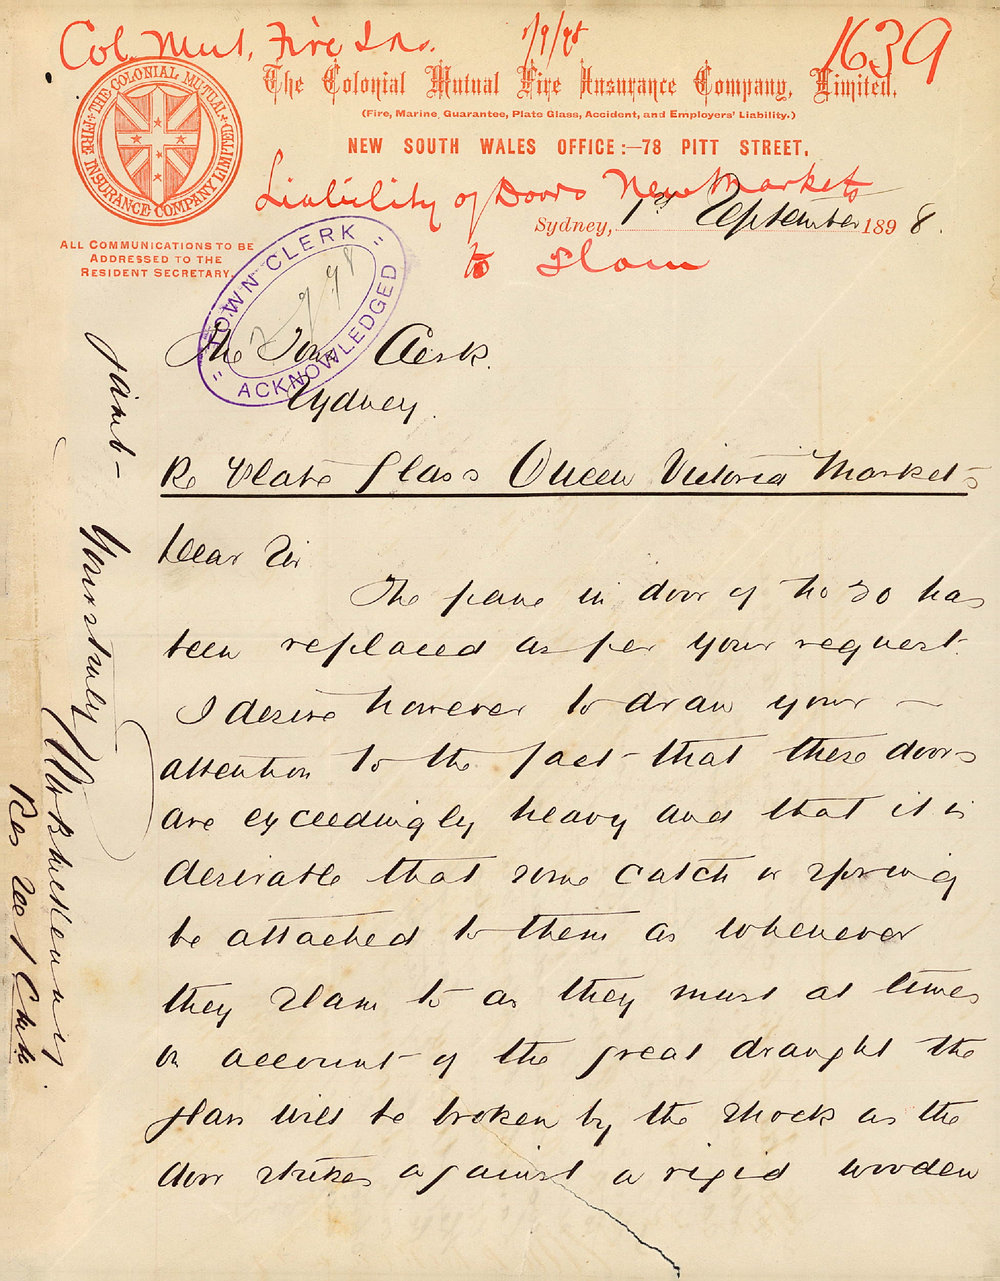 Col. Mut. Fire Ins.
1/9/98
1639
The Colonial Mutual Fire Insurance Company, Limited.
(Fire, Marine, Guarantee, Plate Glass, Accident, and Employers' Liability.)
NEW SOUTH WALES OFFICE:—78 PITT STREET,
THE COLONIAL MUTUAL FIRE INSURANCE COMPANY LIMITED
Liability of Doors New Markets
to slam
Sydney, 1st September 1898.
ALL COMMUNICATIONS TO BE
ADDRESSED TO THE
RESIDENT SECRETARY.
"TOWN CLERK"
2/9/98
ACKNOWLEDGED
The Town Clerk.
Sydney.
Re Plate Glass Queen Victoria Markets
Dear Sir
The pane in door of No 30 has
been replaced as per your request.
I desire however to draw your
attention to the fact that these doors
are exceedingly heavy and that it is
desirable that some catch or spring
be attached to them as whenever
they slam to as they must at times
on account of the great draught the
glass will be broken by the shock as the
door strikes against a rigid wooden
jamb—
Yours truly
Res Sec